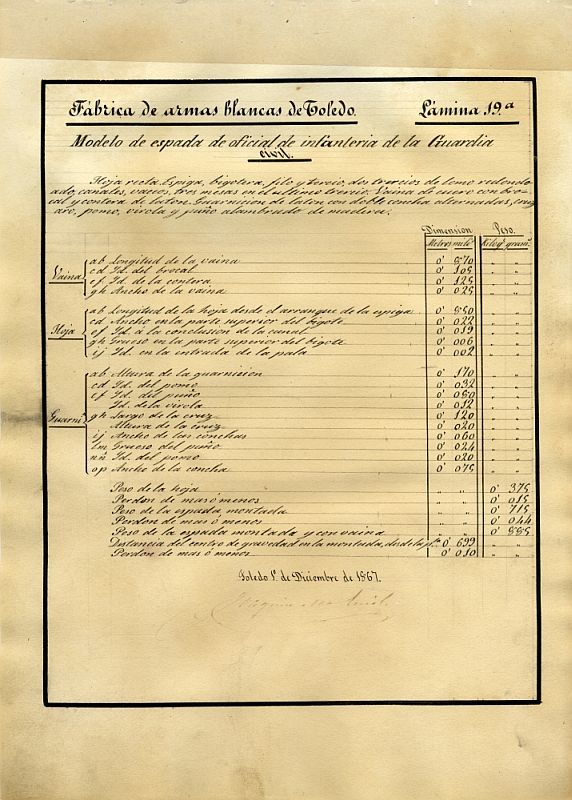 Fábrica de armas blancas de Toledo. Lámina 19.ª
Modelo de espada de oficial de infanteria de la Guardia
civil.
Hoja recta. Espiga, bigotera, filo y tercio, dos tercios de lomo redonde
ado, canales, vaceos, tres mesas en el ultimo tercio. Vaina de cuero con bro
cal y contera de laton. Guarnicion de laton con doble concha alternadas, cruz
aro, pomo, virola y puño alambrado de madera.
Dimension Peso.
Metros mils. Kilogs. grams.
Vaina
ab Longitud de la vaina 0' 870 " "
cd Id. del brocal 0' 105 " "
ef Id. de la contera 0' 125 " "
gh Ancho de la vaina 0' 025 " "
Hoja
ab Longitud de la hoja desde el arranque de la espiga 0' 850 " "
cd Ancho en la parte superior del bigote 0' 022 " "
ef Id. á la conclusion de la canal 0' 019 " "
gh Grueso en la parte superior del bigote 0' 006 " "
ij Id. en la entrada de la pala 0' 002 " "
Guarn.n
ab Altura de la guarnicion 0' 170 " "
cd Id. del pomo 0' 032 " "
ef Id. del puño 0' 080 " "
Id. de la virola 0' 012 " "
gh Largo de la cruz 0' 120 " "
Altura de la cruz 0' 020 " "
ij Ancho de las conchas 0' 060 " "
lm Grueso del puño 0' 024 " "
nñ Id. del pomo 0' 020 " "
op Ancho de la concha 0' 075 " "
Peso de la hoja " " 0' 375
Perdon de mas ó menos " " 0' 015
Peso de la espada montada " " 0' 715
Perdon de mas ó menos " " 0' 044
Peso de la espada montada y con vaina " " 0' 885
Distancia del centro de gravedad en la montada, desde la 0' 699 " "
Perdon de mas ó menos 0' 010 " "
Toledo 1.º de Diciembre de 1867.